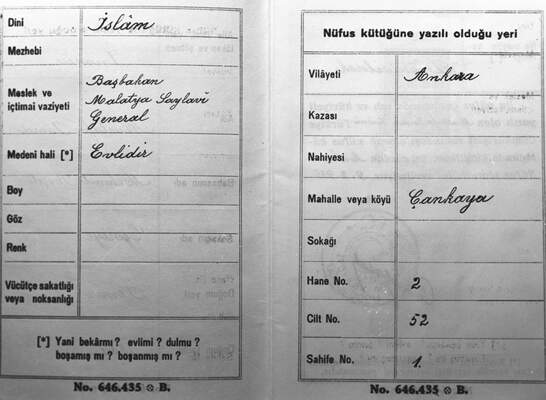 Dini İslâm
Mezhebi
Meslek ve içtimai vaziyeti
Başbakan
Malatya Saylavı
General
Medeni hali [*] Evlidir
Boy
Göz
Renk
Vücütçe sakatlığı
veya noksanlığı
[*] Yani bekârmı? evlimi? dulmu?
boşamış mı? boşanmış mı?
No. 646.435 ⊗ B.
Nüfus kütüğüne yazılı olduğu yeri
Vilâyeti Ankara
Kazası
Nahiyesi
Mahalle veya köyü Çankaya
Sokağı
Hane No. 2
Cilt No. 52
Sahife No. 1.
No. 646.435 ⊗ B.